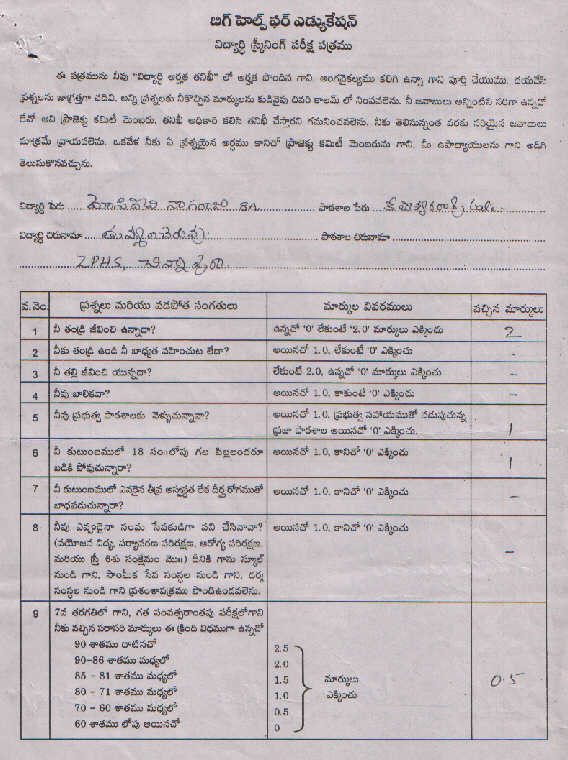 బిగ్ హెల్ప్ ఫర్ ఎడ్యుకేషన్
విద్యార్ధి స్క్రీనింగ్ పరీక్ష పత్రము
ఈ పత్రమును నీవు "విద్యార్ధి అర్హత తనిఖీ" లో అర్హత పొందిన గాని, అంగవైకల్యము కలిగి ఉన్నా గాని పూర్తి చేయుము. దయచేసి
ప్రశ్నలను జాగ్రత్తగా చదివి, అన్ని ప్రశ్నలకు నీకొచ్చిన మార్కులను కుడివైపు చివరి కాలమ్ లో నింపవలెను. నీ జవాబులు అన్నింటిని సరిగా ఉన్నదో
లేదో అని ప్రాజెక్టు కమిటీ మెంబరు, తనిఖీ అధికారి కలిసి తనిఖీ చేస్తారని గమనించవలెను. నీకు తెలిసినంత వరకు సరియైన జవాబులు
మాత్రమే వ్రాయవలెను. ఒకవేళ నీకు ఏ ప్రశ్నయైన అర్థము కానిచో ప్రాజెక్టు కమిటీ మెంబరును గాని, మీ ఉపాధ్యాయులను గాని అడిగి
తెలుసుకొనవచ్చును.
విద్యార్ధి పేరు పాఠశాల పేరు
విద్యార్ధి చిరునామా పాఠశాల చిరునామా
ZPHS,
వ. నెం. ప్రశ్నలు మరియు వడపోత సంగతులు మార్కుల వివరములు వచ్చిన మార్కులు
1 నీ తండ్రి జీవించి ఉన్నాడా? ఉన్నచో '0' లేకుంటే '2.0' మార్కులు ఎక్కించు 2
2 నీకు తండ్రి ఉండి నీ బాధ్యత వహించుట లేదా? అయినచో 1.0, లేకుంటే '0' ఎక్కించు -
3 నీ తల్లి జీవించి యున్నదా? లేకుంటే 2.0, ఉన్నచో '0' మార్కులు ఎక్కించు -
4 నీవు బాలికవా? అయినచో 1.0, కాకుంటే '0' ఎక్కించు -
5 నీవు ప్రభుత్వ పాఠశాలకు వెళ్ళుచున్నావా? అయినచో 1.0, ప్రభుత్వ సహాయముతో నడుపుచున్న
ప్రైవేటు పాఠశాల అయినచో '0' ఎక్కించు. 1
6 నీ కుటుంబములో 18 సం॥లోపు గల పిల్లలందరూ
బడికి పోవుచున్నారా? అయినచో 1.0, కానిచో '0' ఎక్కించు 1
7 నీ కుటుంబములో ఎవరికైన తీవ్ర అస్వస్థత లేక దీర్ఘ రోగముతో
బాధపడుచున్నారా? అయినచో 1.0, కానిచో '0' ఎక్కించు -
8 నీవు ఎప్పుడైనా సంఘ సేవకుడిగా పని చేసినావా? అయినచో 1.0, కానిచో '0' ఎక్కించు
(వయోజన విద్య, పర్యావరణ పరిరక్షణ, ఆరోగ్య పరిరక్షణ
మరియు స్త్రీ శిశు సంక్షేమం మొ॥) దీనికి గాను స్కూల్ -
నుండి గాని, సాంఘిక సేవ సంస్థల నుండి గాని, ధర్మ
సంస్థల నుండి గాని ప్రశంశాపత్రము పొందిఉండవలెను.
9 7వ తరగతిలో గాని, గత సంవత్సరాంతపు పరీక్షలోగాని
నీకు వచ్చిన సరాసరి మార్కులు ఈ క్రింది విధముగా ఉన్నచో
90 శాతము దాటినచో 2.5
90-86 శాతము మధ్యలో 2.0
85 - 81 శాతము మధ్యలో 1.5 మార్కులు 0.5
80 - 71 శాతము మధ్యలో 1.0 ఎక్కించు
70 - 60 శాతము మధ్యలో 0.5
60 శాతము లోపు అయినచో 0